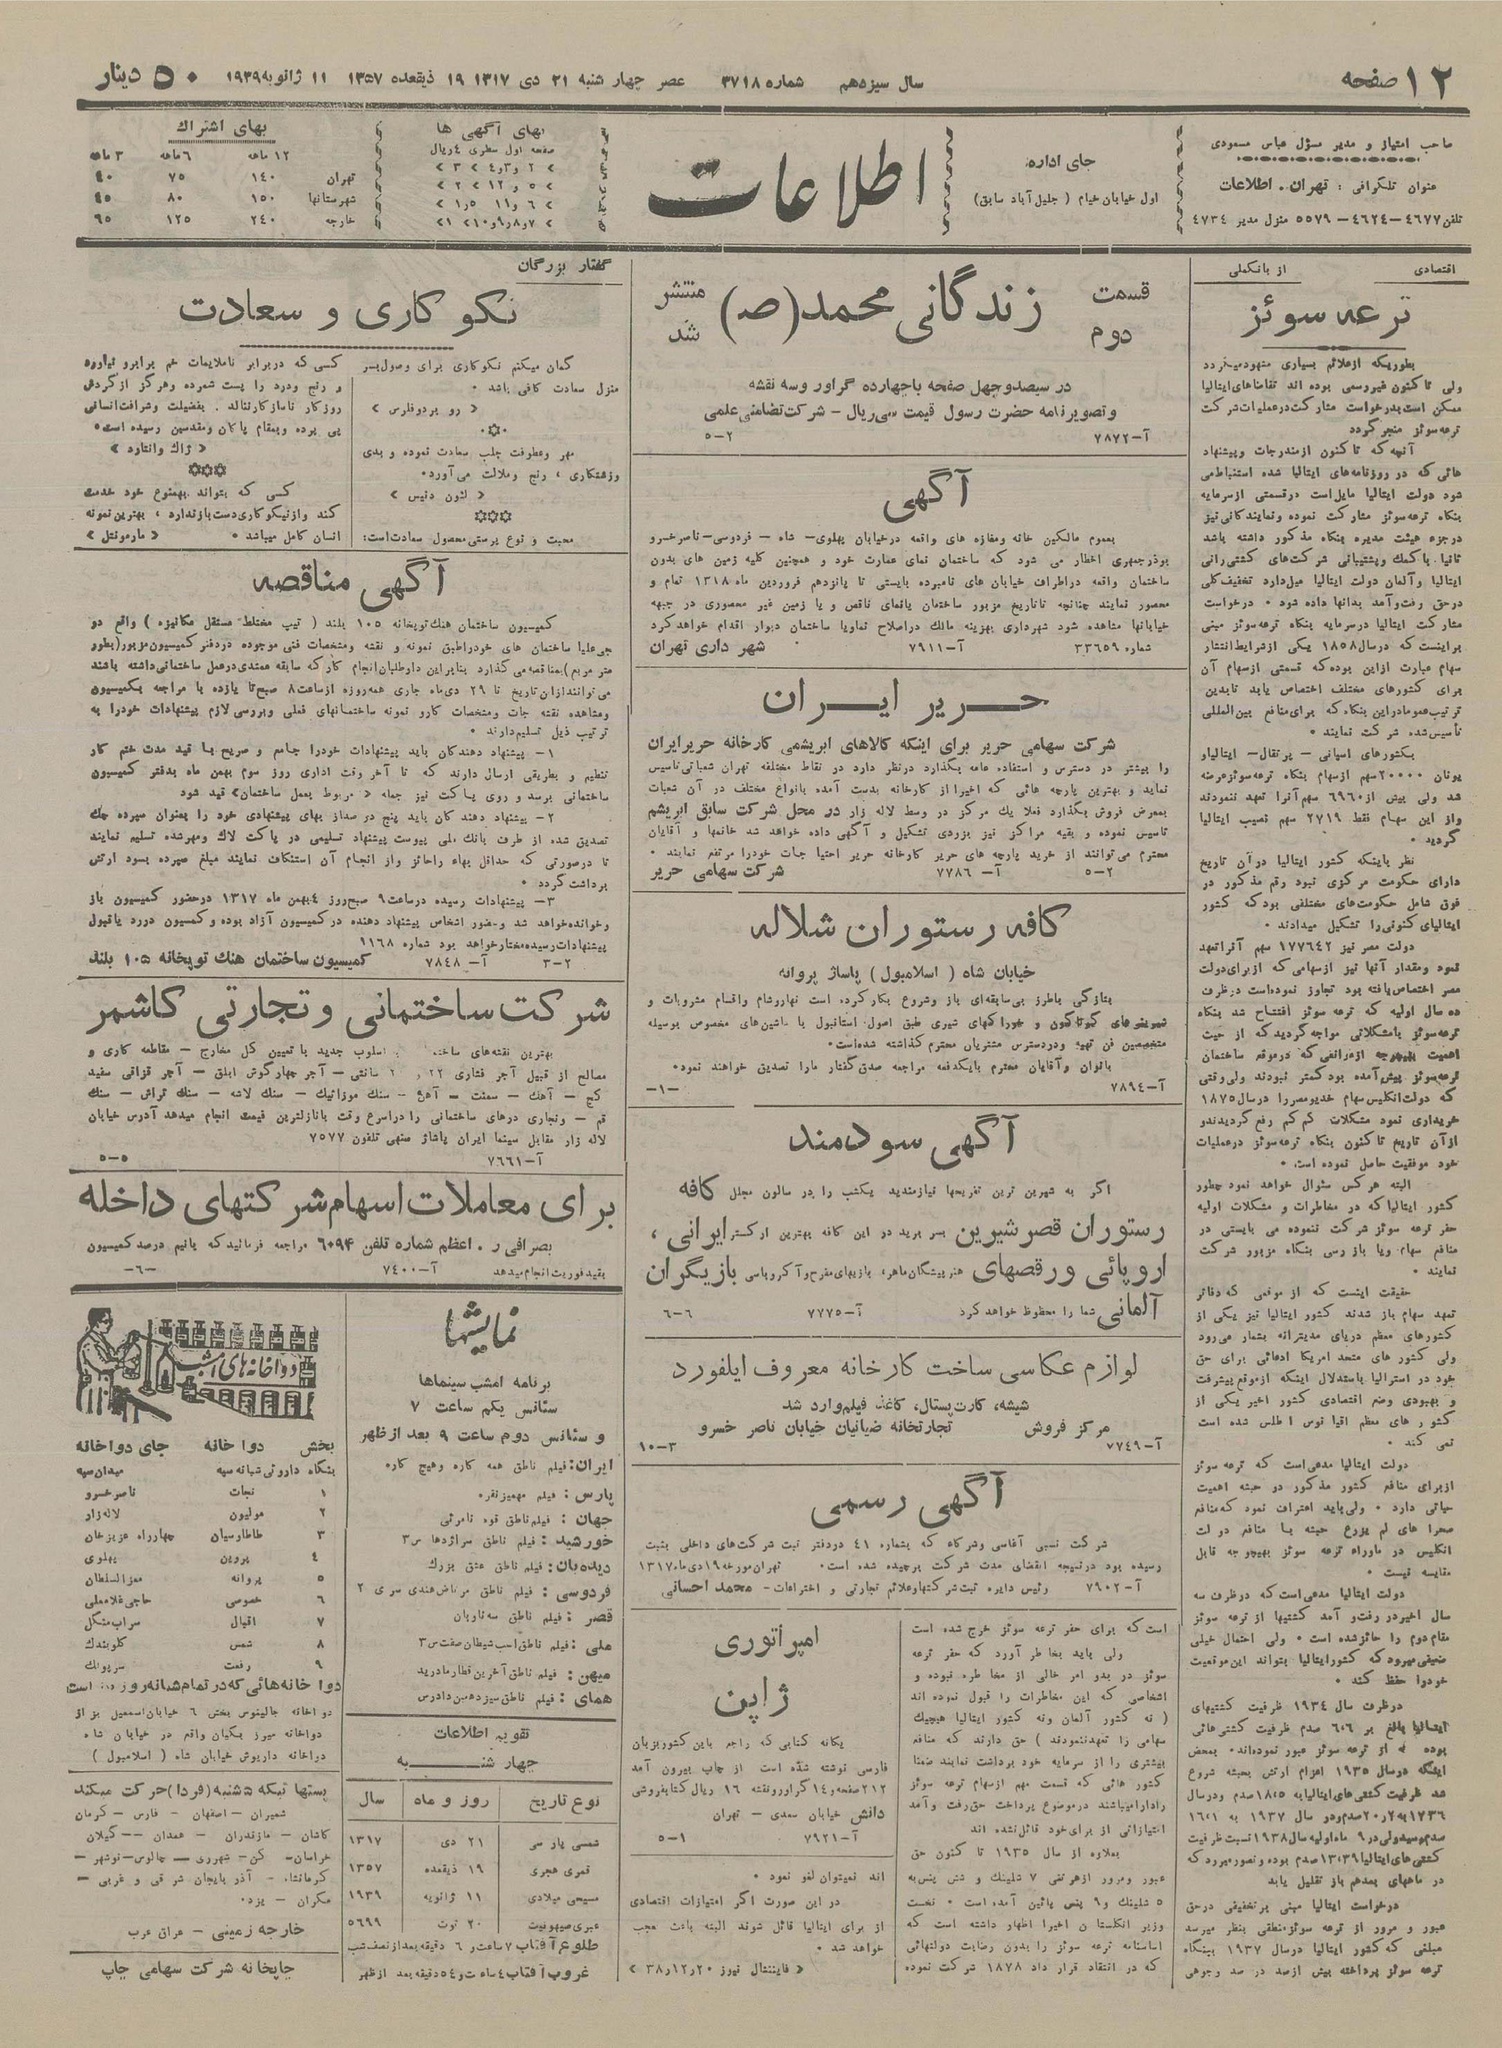 ۱۲ صفحه
سال سیزدهم شماره ۳۷۱۸ عصر چهار شنبه ۲۱ دی ۱۳۱۷ ۱۹ ذیقعده ۱۳۵۷ ۱۱ ژانویه ۱۹۳۹
۵۰ دینار
صاحب امتیاز و مدیر مسؤل عباس مسعودی
عنوان تلگرافی : تهران . اطلاعات
تلفن ۴۶۷۷ – ۴۶۲۴ – ۵۵۷۹ منزل مدیر ۴۷۳۴
جای اداره:
اول خیابان خیام ( جلیل آباد سابق )
اطلاعات
بهای آگهی ها
صفحه اول سطری ۴ ریال
بهای اشتراك
۱۲ ماهه ۶ ماهه ۳ ماهه
تهران ۱۴۰ ۷۵ ۴۰
شهرستانها ۱۵۰ ۸۰ ۴۵
خارجه ۲۴۰ ۱۲۵ ۶۵
اقتصادی از بانکملی
ترعه سوئز
بطوریکه از علائم بسیاری مشهود میگردد
ولی تا کنون غیر رسمی بوده اند تقاضاهای ایتالیا
ممکن است بدرخواست مشارکت در عملیات شرکت
ترعه سوئز منجر گردد
آنچه که تا کنون از مندرجات و پیشنهاد
هائی که در روزنامه های ایتالیا شده استنباط می
شود دولت ایتالیا مایل است در قسمتی از سرمایه
بنگاه ترعه سوئز مشارکت نموده و نمایندگانی نیز
در جزء هیئت مدیره بنگاه مذکور داشته باشد
ثانیا . با کمك و پشتیبانی شرکت های کشتی رانی
ایتالیا و آلمان دولت ایتالیا میل دارد تخفیف کلی
در حق رفت و آمد بدانها داده شود ۰ درخواست
مشارکت ایتالیا در سرمایه بنگاه ترعه سوئز مبنی
بر اینست که در سال ۱۸۵۸ یکی از شرایط انتشار
سهام عبارت از این بوده که قسمتی از سهام آن
برای کشورهای مختلف اختصاص یابد تا بدین
ترتیب عموما در این بنگاه که برای منافع بین المللی
تأسیس شده شرکت نمایند ۰
بکشورهای اسپانی – پرتقال – ایتالیا و
یونان ۲۰۰۰۰ سهم از سهام بنگاه ترعه سوئز عرضه
شد ولی بیش از ۶۹۶۰ سهم آنرا تعهد ننمودند
و از این سهام فقط ۲۷۱۹ سهم نصیب ایتالیا
گردید ۰
نظر باینکه کشور ایتالیا در آن تاریخ
دارای حکومت مرکزی نبود رقم مذکور در
فوق شامل حکومت های مختلفی بود که کشور
ایتالیای کنونی را تشکیل میدادند ۰
دولت مصر نیز ۱۷۷۶۴۲ سهم آنرا تعهد
نمود و مقدار آنها نیز از سهامی که از برای دولت
مصر اختصاص یافته بود تجاوز نموده است در ظرف
ده سال اولیه که ترعه سوئز افتتاح شد بنگاه
ترعه سوئز با مشکلاتی مواجه گردید که از حیث
اهمیت بهیچوجه از موانعی که در موقع ساختمان
ترعه سوئز پیش آمده بود کمتر نبودند ولی وقتی
که دولت انگلیس سهام خدیو مصر را در سال ۱۸۷۵
خریداری نمود مشکلات کم کم رفع گردیدند و
از آن تاریخ تا کنون بنگاه ترعه سوئز در عملیات
خود موفقیت حاصل نموده است ۰
البته هر کس سئوال خواهد نمود چطور
کشور ایتالیا که در مخاطرات و مشکلات اولیه
حفر ترعه سوئز شرکت ننموده می بایستی در
منافع سهام و یا بازرسی بنگاه مزبور شرکت
نمایند ۰
حقیقت اینست که از موقعی که دفاتر
تعهد سهام باز شدند کشور ایتالیا نیز یکی از
کشورهای معظم دریای مدیترانه بشمار میرود
ولی کشور های متحد امریکا ادعائی برای حق
خود در استرالیا باستدلال اینکه از موقع پیشرفت
و بهبودی وضع اقتصادی کشور اخیر یکی از
کشورهای معظم اقیانوس اطلس شده است
نمی کند ۰
دولت ایتالیا مدعی است که ترعه سوئز
از برای منافع کشور مذکور در حبشه اهمیت
حیاتی دارد ۰ ولی باید اعتراف نمود که منافع
صحرا های لم یزرع حبشه با منافع دولت
انگلیس در ماوراء ترعه سوئز بهیچوجه قابل
مقایسه نیست ۰
دولت ایتالیا مدعی است که در ظرف سه
سال اخیر در رفت و آمد کشتیها از ترعه سوئز
مقام دوم را حائز شده است ۰ ولی احتمال خیلی
ضعیفی میرود که کشور ایتالیا بتواند این موقعیت
خود را حفظ کند ۰
در ظرف سال ۱۹۳۴ ظرفیت کشتیهای
ایتالیا بالغ بر ۶٫۶ صدم ظرفیت کشتی هائی
بوده که از ترعه سوئز عبور نموده اند۰ بمحض
اینکه در سال ۱۹۳۵ اعزام ارتش بحبشه شروع
شد ظرفیت کشتی های ایتالیا به ۱۸٫۵ صدم و در سال
۱۹۳۶ به ۲۰٫۲ صدم و در سال ۱۹۳۷ به ۱۶٫۱
صدم رسید ولی در ۹ ماه اولیه سال ۱۹۳۸ نسبت ظرفیت
کشتی های ایتالیا ۱۳٫۳۹ صدم بوده و تصور میرود که
در ماههای بعد هم باز تقلیل یابد
درخواست ایتالیا مبنی بر تخفیفی در حق
عبور و مرور از ترعه سوئز منطقی بنظر میرسد
مبلغی که کشور ایتالیا در سال ۱۹۳۷ ببنگاه
ترعه سوئز پرداخته بیش از صد در صد وجوهی
است که برای حفر ترعه سوئز خرج شده است
ولی باید بخاطر آورد که حفر ترعه
سوئز در بدو امر خالی از مخاطره نبوده و
اشخاصی که این مخاطرات را قبول نموده اند
( نه کشور آلمان و نه کشور ایتالیا هیچیك
سهامی را تعهد ننمودند ) حق دارند که منافع
بیشتری را از سرمایه خود برداشت نمایند ضمنا
کشور هائی که قسمت مهم از سهام ترعه سوئز
را دارا میباشند در موضوع پرداخت حق رفت و آمد
امتیازاتی از برای خود قائل نشده اند
بعلاوه از سال ۱۹۳۵ تا کنون حق
عبور و مرور از هر تنی ۷ شلینك و شش پنس به
۵ شلینك و ۹ پنس پائین آمده است ۰ نخست
وزیر انگلستان اخیرا اظهار داشته است که
اساسنامه ترعه سوئز را بدون رضایت دولتهائی
که در انعقاد قرار داد ۱۸۷۸ شرکت نموده
اند نمیتوان لغو نمود ۰
در این صورت اگر امتیازات اقتصادی
از برای ایتالیا قائل شوند البته باعث تعجب
خواهد شد ۰
« فایننشال نیوز ۲۰ر۱۲ر۳۸ »
قسمت دوم
زندگانی محمد (ص)
منتشر شد
در سیصد و چهل صفحه با چهارده گراور و سه نقشه
و تصویر نامه حضرت رسول قیمت سی ریال – شرکت تضامنی علمی
آ – ۷۸۷۲ ۲–۵
آگهی
بعموم مالکین خانه و مغازه های واقعه در خیابان پهلوی – شاه – فردوسی – ناصر خسرو
بوذرجمهری اخطار می شود که ساختمان نمای عمارت خود و همچنین کلیه زمین های بدون
ساختمان واقعه در اطراف خیابان های نامبرده بایستی تا پانزدهم فروردین ماه ۱۳۱۸ تمام و
محصور نمایند چنانچه تا تاریخ مزبور ساختمان یا نمای ناقص و یا زمین غیر محصوری در جبهه
خیابانها مشاهده شود شهرداری بهزینه مالك در اصلاح نما و یا ساختمان دیوار اقدام خواهد کرد
شماره ۳۳۶۵۹ آ – ۷۹۱۱ شهر داری تهران
حریر ایران
شرکت سهامی حریر برای اینکه کالاهای ابریشمی کارخانه حریر ایران
را بیشتر در دسترس و استفاده عامه بگذارد در نظر دارد در نقاط مختلفه تهران شعباتی تاسیس
نماید و بهترین پارچه هائی که اخیرا از کارخانه بدست آمده بانواع مختلف در آن شعبات
بمعرض فروش بگذارد فعلا یك مرکز در وسط لاله زار در محل شرکت سابق ابریشم
تاسیس نموده و بقیه مراکز نیز بزودی تشکیل و آگهی داده خواهد شد خانمها و آقایان
محترم می توانند از خرید پارچه های حریر کارخانه حریر احتیاجات خود را مرتفع نمایند ۰
۲–۵ آ – ۷۷۸۶ شرکت سهامی حریر
کافه رستوران شلاله
خیابان شاه ( اسلامبول ) پاساژ پروانه
بتازگی با طرز بی سابقه ای باز و شروع بکار کرده است نهار و شام و اقسام مشروبات و
شیرینی های گوناگون و خوراکهای شیری طبق اصول استانبول با ماشین های مخصوص بوسیله
متخصصین فن تهیه و در دسترس مشتریان محترم گذاشته شده است ۰
بانوان و آقایان محترم با یکدفعه مراجعه صدق گفتار ما را تصدیق خواهند نمود ۰
آ – ۷۸۹۴ –۱–
آگهی سودمند
اگر به شیرین ترین تفریحها نیازمندید یکشب را در سالون مجلل کافه
رستوران قصر شیرین بسر برید در این کافه بهترین ارکستر ایرانی ،
اروپائی و رقصهای هنرپیشگان ماهر، بازیهای مفرح و آکروباسی بازیگران
آلمانی شما را محظوظ خواهد کرد آ – ۷۷۷۵ ۶–۶
لوازم عکاسی ساخت کارخانه معروف ایلفورد
شیشه، کارت پستال، کاغذ فیلم وارد شد
مرکز فروش تجارتخانه ضیائیان خیابان ناصر خسرو
آ – ۷۷۴۹ ۳–۱۰
آگهی رسمی
شرکت نسبی آقاسی و شرکاء که بشماره ۴۱ در دفتر ثبت شرکت های داخلی بثبت
رسیده بود در نتیجه انقضای مدت شرکت برچیده شده است ۰ تهران مورخه ۱۹ دی ماه ۱۳۱۷
آ – ۷۹۰۲ رئیس دایره ثبت شرکتها و علائم تجارتی و اختراعات – محمد احسانی
امپراتوری
ژاپن
یگانه کتابی که راجع باین کشور بزبان
فارسی نوشته شده است از چاپ بیرون آمد
۲۱۲ صفحه و ۱۴ گراور و نقشه ۱۶ ریال کتابفروشی
دانش خیابان سعدی – تهران
آ – ۷۹۲۱ ۱–۵
گفتار بزرگان
نکو کاری و سعادت
گمان میکنم نکوکاری برای وصول بسر
منزل سعادت کافی باشد ۰
« رو بر دوفلرس »
مهر و عطوفت جلب سعادت نموده و بدی
و زشتکاری ، رنج و ملالت می آورد۰
« لئون دنیس »
محبت و نوع پرستی محصول سعادت است:
کسی که در برابر ناملایمات خم بر ابرو نیاورده
و رنج و درد را پست شمرده و هرگز از گردش
روزگار ناسازگار ننالد . بفضیلت و شرافت انسانی
پی برده و بمقام پاکان و مقدسین رسیده است۰
« ژاك وانتاود »
کسی که بتواند بهمنوع خود خدمت
کند و از نیکوکاری دست باز ندارد ، بهترین نمونه
انسان کامل میباشد ۰ « مارمونتل »
آگهی مناقصه
کمیسیون ساختمان هنك توپخانه ۱۰۵ بلند ( تیپ مختلط مستقل مکانیزه ) واقع دو
جی علیا ساختمان های خود را طبق نمونه و نقشه و مشخصات فنی موجوده در دفتر کمیسیون مزبور (بطور
متر مربع) بمناقصه می گذارد بنابراین داوطلبان انجام کار که سابقه ممتدی در عمل ساختمانی داشته باشند
می توانند از این تاریخ تا ۲۹ دی ماه جاری همه روزه از ساعت ۸ صبح تا یازده با مراجعه بکمیسیون
و مشاهده نقشه جات و مشخصات کار و نمونه ساختمانهای فعلی و بررسی لازم پیشنهادات خود را به
ترتیب ذیل تسلیم دارند ۰
۱ – پیشنهاد دهندگان باید پیشنهادات خود را جامع و صریح با قید مدت ختم کار
تنظیم و بطریقی ارسال دارند که تا آخر وقت اداری روز سوم بهمن ماه بدفتر کمیسیون
ساختمانی برسد و روی پاکت نیز جمله « مربوط بعمل ساختمان» قید شود
۲ – پیشنهاد دهندگان باید پنج در صد از بهای پیشنهادی خود را بعنوان سپرده چك
تصدیق شده از طرف بانك ملی پیوست پیشنهاد تسلیمی در پاکت لاك و مهر شده تسلیم نمایند
تا در صورتی که حداقل بهاء را حائز و از انجام آن استنکاف نمایند مبلغ سپرده بسود ارتش
برداشت گردد ۰
۳ – پیشنهادات رسیده در ساعت ۹ صبح روز ۴ بهمن ماه ۱۳۱۷ در حضور کمیسیون باز
و خوانده خواهد شد و حضور اشخاص پیشنهاد دهنده در کمیسیون آزاد بوده و کمسیون در رد یا قبول
پیشنهادات رسیده مختار خواهد بود شماره ۱۱۶۸
۲–۳ آ – ۷۸۴۸ کمیسیون ساختمان هنك توپخانه ۱۰۵ بلند
شرکت ساختمانی و تجارتی کاشمر
بهترین نقشه های اسلوب جدید با تعیین کل مخارج – مقاطعه کاری و
مصالح از قبیل آجر فشاری ۲۲ سانتی – آجر چهار گوش ابلق – آجر قزاقی سفید
گچ – آهك – سمنت – آهن – سنك موزائیك – سنك لاشه – سنك تراش – سنك
قم – و نجاری درهای ساختمانی را در اسرع وقت با نازلترین قیمت انجام میدهد آدرس خیابان
لاله زار مقابل سینما ایران پاساژ منهی تلفون ۷۵۷۷
آ – ۷۶۶۱ ۵–۵
برای معاملات اسهام شرکتهای داخله
بصرافی ر . اعظم شماره تلفن ۶۰۹۴ مراجعه فرمائید که با نیم درصد کمیسیون
بقید فوریت انجام میدهد آ – ۷۴۰۰ –۶–
نمایشها
برنامه امشب سینماها
سئانس یکم ساعت ۷
و سئانس دوم ساعت ۹ بعد از ظهر
ایران: فیلم ناطق همه کاره و هیچ کاره
پارس: فیلم مهمیز نقره
جهان: فیلم ناطق قوه نامرئی
خورشید: فیلم ناطق سراژدها س۳
دیده بان: فیلم ناطق عشق بزرك
فردوسی: فیلم ناطق مرتاض هندی سری ۲
قصر: فیلم ناطق سه ناربان
ملی: فیلم ناطق اسب شیطان صفت س۳
میهن: فیلم ناطق آخرین قطار مادرید
همای: فیلم ناطق سیزدهمین دادرس
تقویم اطلاعات
چهار شنبه
نوع تاریخ روز و ماه سال
شمسی پارسی ۲۱ دی ۱۳۱۷
قمری هجری ۱۹ ذیقعده ۱۳۵۷
مسیحی میلادی ۱۱ ژانویه ۱۹۳۹
عبری صیهونیت ۲۰ توت ۵۶۹۹
طلوع آفتاب ۷ ساعت و ۶ دقیقه بعد از نصف شب
غروب آفتاب ۴ ساعت و ۵۴ دقیقه بعد از ظهر
دواخانه های امشب
بخش دوا خانه جای دواخانه
بنگاه داروئی شبانه سپه میدان سپه
۱ نجات ناصر خسرو
۲ مولیون لاله زار
۳ طاطاوسیان چهارراه عزیز خان
۴ پروین پهلوی
۵ پروانه معز السلطان
۶ خصوصی حاجی غلامعلی
۷ اقبال سراب منگل
۸ شمس کلوبندك
۹ رفعت سرپولك
دوا خانه هائی که در تمام شبانه روز باز است
دواخانه جالینوس بخش ۶ خیابان اسمعیل بزاز
دواخانه میرزیکیان واقع در خیابان شاه
دواخانه داریوش خیابان شاه ( اسلامبول )
پستها ئیکه ۵ شنبه (فردا) حرکت میکند
شمیران – اصفهان – فارس – کرمان
کاشان – مازندران – همدان – گیلان
خراسان – کن – شهرری – چالوس – نوشهر –
کرمانشاه – آذربایجان شرقی و غربی –
مکران – یزد۰
خارجه زمینی – عراق عرب
چاپخانه شرکت سهامی چاپ